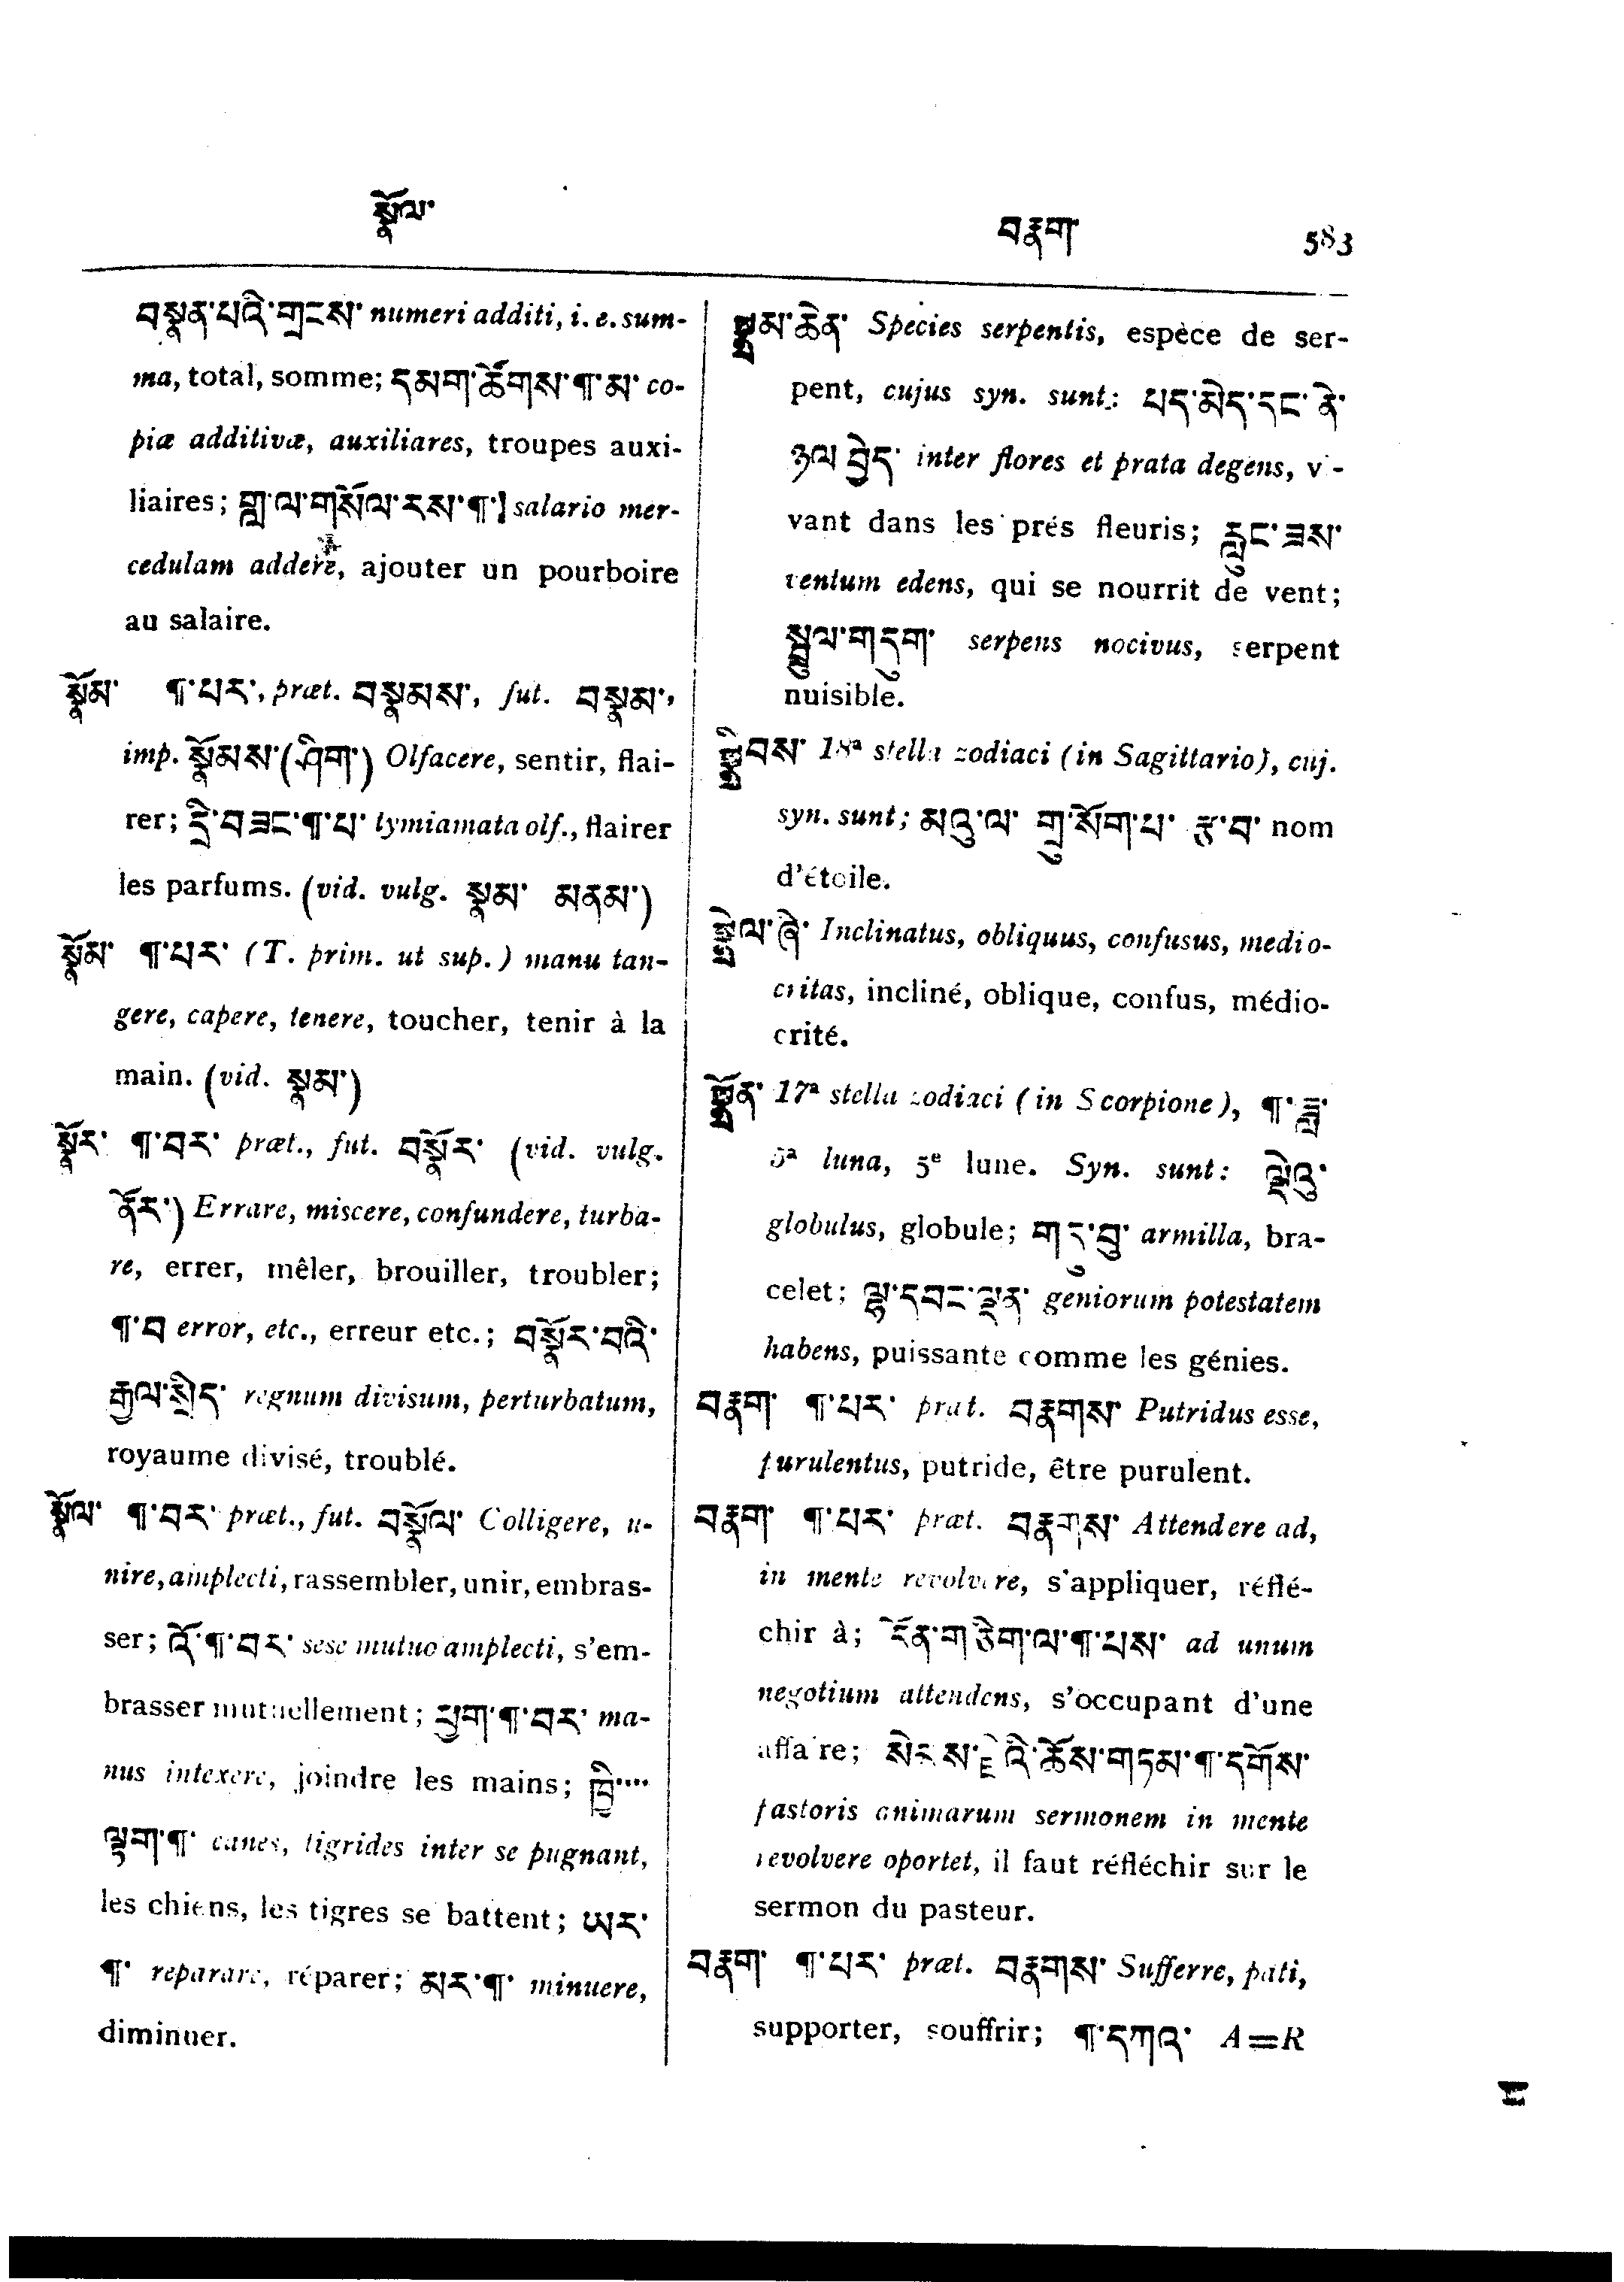 སྣོལ་ བརྣག་ 583
བསྣན་པའི་གྲངས་ numeri additi, i. e. sum-
ma, total, somme; དམག་ཚོགས་¶་མ་ co-
piæ additivæ, auxiliares, troupes auxi-
liaires; གླ་ལ་གསོལ་རས་¶་། salario mer-
cedulam addere, ajouter un pourboire
au salaire.
སྣོམ་ ¶་པར་, præt. བསྣམས་, fut. བསྣམ་,
imp. སྣོམས་(ཤིག་) Olfacere, sentir, flai-
rer; དྲི་བཟང་¶་པ་ tymiamata olf., flairer
les parfums. (vid. vulg. སྣམ་ མནམ་)
སྣོམ་ ¶་པར་ (T. prim. ut sup.) manu tan-
gere, capere, tenere, toucher, tenir à la
main. (vid. སྣམ་)
སྣོར་ ¶་བར་ præt., fut. བསྣོར་ (vid. vulg.
ནོར་) Errare, miscere, confundere, turba-
re, errer, mêler, brouiller, troubler;
¶་བ error, etc., erreur etc.; བསྣོར་བའི་
རྒྱལ་སྲིད་ regnum divisum, perturbatum,
royaume divisé, troublé.
སྣོལ་ ¶་བར་ præt., fut. བསྣོལ་ Colligere, u-
nire, amplecti, rassembler, unir, embras-
ser; འོ་¶་བར་ sese mutuo amplecti, s'em-
brasser mutuellement; ཕྱག་¶་བར་ ma-
nus intexere, joindre les mains; ཁྱི་····
ལྟག་¶་ canes, tigrides inter se pugnant,
les chiens, les tigres se battent; ཡར་
¶་ reparare, réparer; མར་¶་ minuere,
diminuer.
སྣྲམ་ཆེན་ Species serpentis, espèce de ser-
pent, cujus syn. sunt: པད་མེད་དང་ ནེ་
ཉལ བྱེད་ inter flores et prata degens, vi-
vant dans les prés fleuris; རླུང་ཟས་
ventum edens, qui se nourrit de vent;
སྦྲུལ་གདུག་ serpens nocivus, serpent
nuisible.
18ª stella zodiaci (in Sagittario), cuj.
syn. sunt; མའུ་ལ་ གྲུ་སོག་པ་ རྩ་བ་ nom
d'étoile.
སྣྲེལ་ཞི་ Inclinatus, obliquus, confusus, medio-
critas, incliné, oblique, confus, médio-
crité.
སྣྲོན་ 17ª stella zodiaci (in Scorpione), ¶་ཟླ་
5ª luna, 5e lune. Syn. sunt: ལྡེའུ་
globulus, globule; གདུ་བུ་ armilla, bra-
celet; ལྷ་དབང་ལྡན་ geniorum potestatem
habens, puissante comme les génies.
བརྣག་ ¶་པར་ præt. བརྣགས་ Putridus esse,
purulentus, putride, être purulent.
བརྣག་ ¶་པར་ præt. བརྣགས་ Attendere ad,
in mente revolvere, s'appliquer, réflé-
chir à; དོན་གཅིག་ལ་¶་པས་ ad unum
negotium attendens, s'occupant d'une
affaire; ཆོས་གཏམ་¶་དགོས་
pastoris animarum sermonem in mente
revolvere oportet, il faut réfléchir sur le
sermon du pasteur.
བརྣག་ ¶་པར་ præt. བརྣགས་ Sufferre, pati,
supporter, souffrir; ¶་དཀའ་ A=R